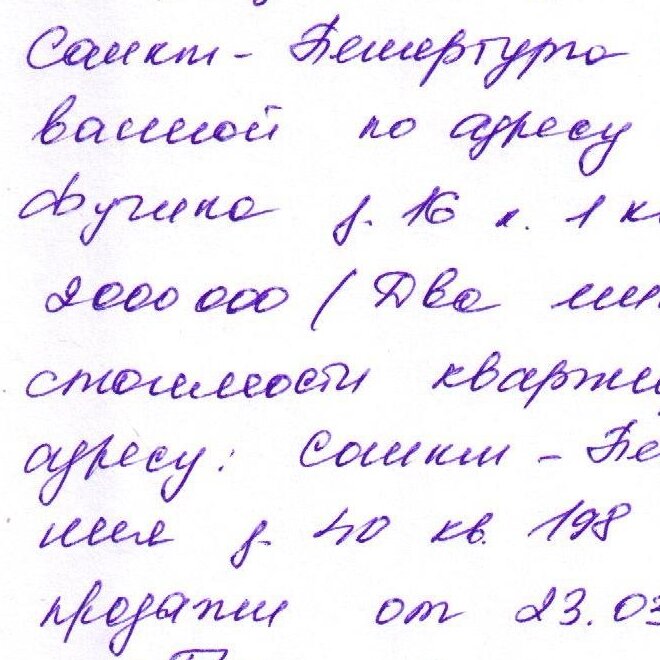 Санкт-Петербурга
ванной по адресу
Фучика д. 16 к. 1 к
2000000 (Два ми
стоимости кварти
адресу: Санкт-Пе
ния д. 40 кв. 198
продажи от 23.03